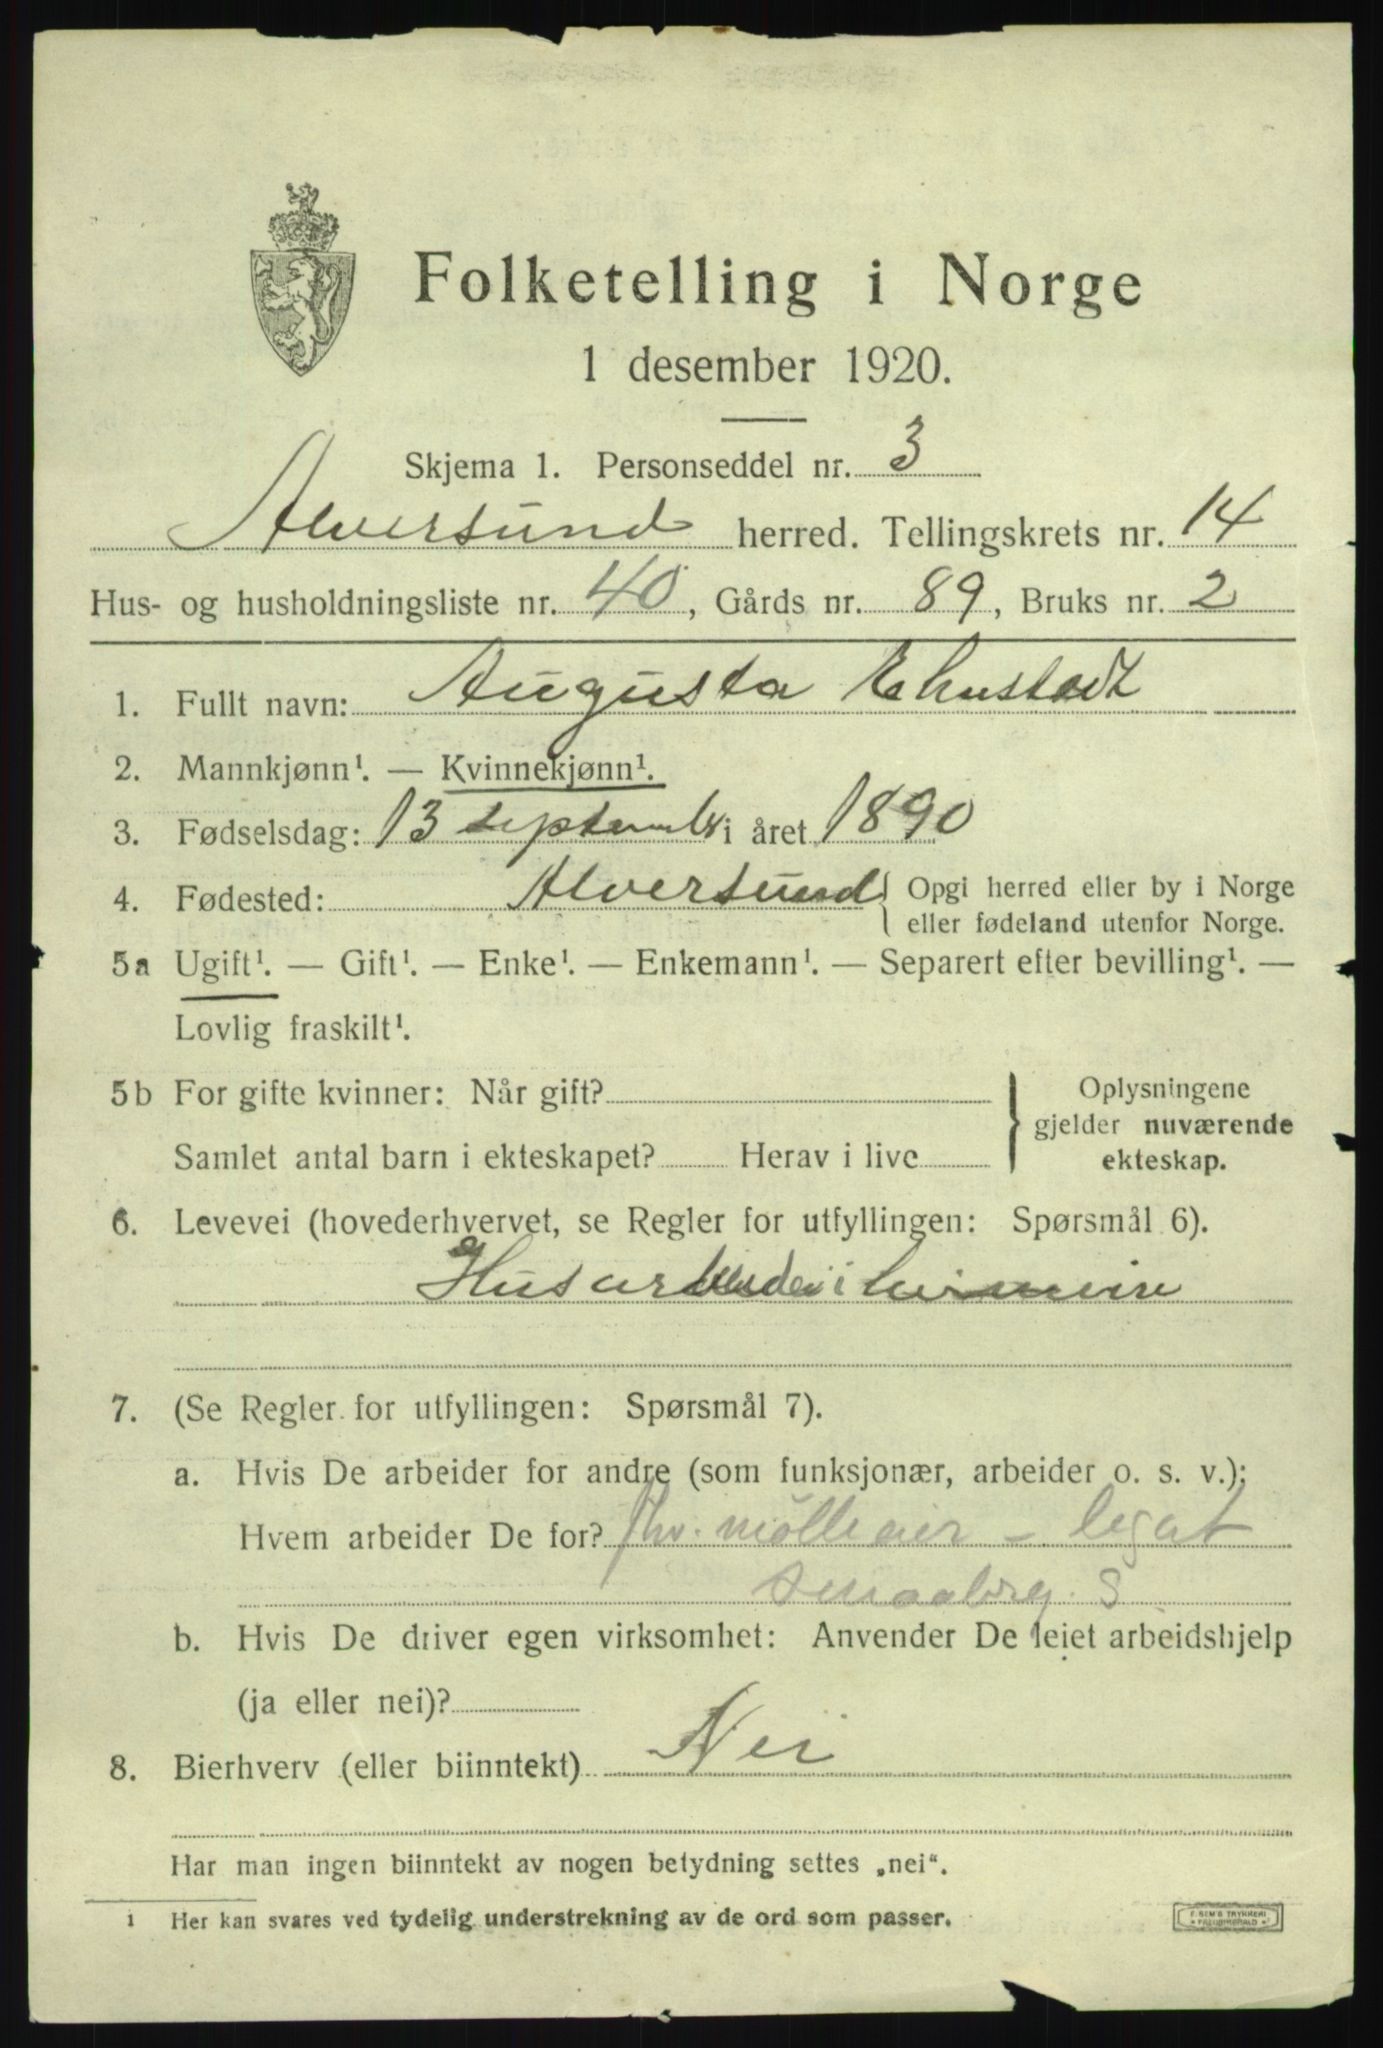 Folketelling i Norge
1 desember 1920.
Skjema 1. Personseddel nr. 3
Alversund herred. Tellingskrets nr. 14
Hus- og husholdningsliste nr. 40, Gårds nr. 89, Bruks nr. 2
1. Fullt navn: Augusta
2. Mannkjønn¹. — Kvinnekjønn¹.
3. Fødselsdag: 13 september i året 1890
4. Fødested: Alversund { Opgi herred eller by i Norge
eller fødeland utenfor Norge.
5a Ugift¹. — Gift¹. — Enke¹. — Enkemann¹. — Separert efter bevilling¹. —
Lovlig fraskilt¹.
5b For gifte kvinner: Når gift? } Oplysningene
gjelder nuværende
Samlet antal barn i ekteskapet? Herav i live ekteskap.
6. Levevei (hovederhvervet, se Regler for utfyllingen: Spørsmål 6).
i
7. (Se Regler for utfyllingen: Spørsmål 7).
a. Hvis De arbeider for andre (som funksjonær, arbeider o. s. v.):
Hvem arbeider De for? legat
b. Hvis De driver egen virksomhet: Anvender De leiet arbeidshjelp
(ja eller nei)?
8. Bierhverv (eller biinntekt) Nei
Har man ingen biinntekt av nogen betydning settes „nei“.
1 Her kan svares ved tydelig understrekning av de ord som passer.